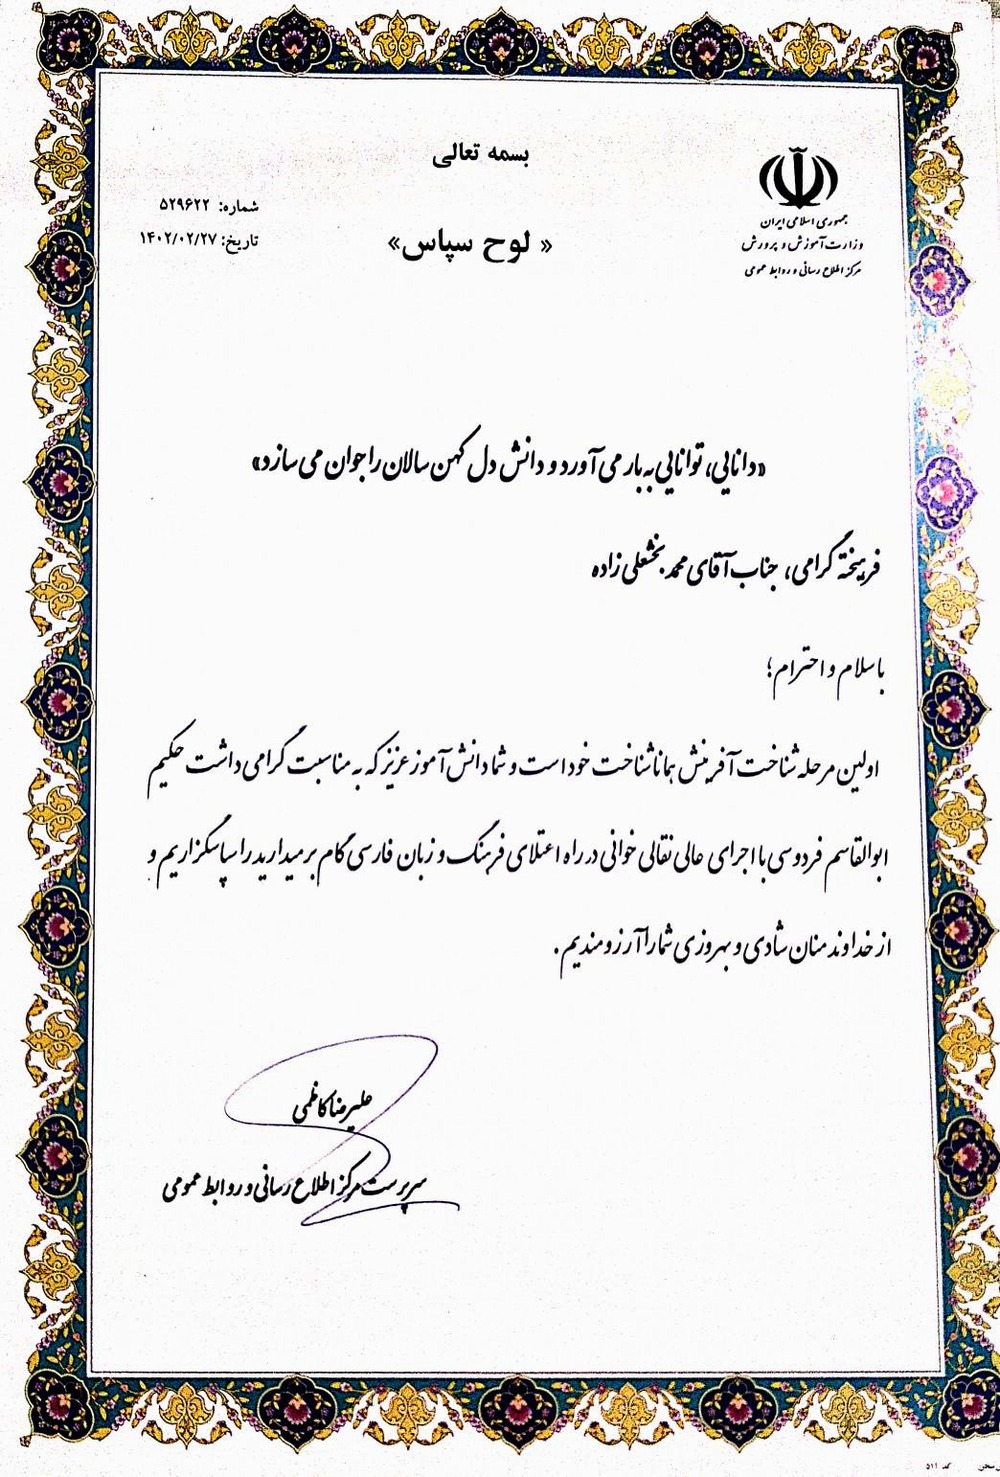 بسمه تعالی
جمهوری اسلامی ایران
وزارت آموزش و پرورش
مرکز اطلاع رسانی و روابط عمومی
« لوح سپاس»
شماره: ۵۲۹۶۲۲
تاریخ: ۱۴۰۲/۰۲/۲۷
«دانایی، توانایی به بار می آورد و دانش دل کهن سالان را جوان می سازد»
فرهیخته گرامی، جناب آقای محمد بخشعلی زاده
با سلام و احترام؛
اولین مرحله شناخت آفرینش همانا شناخت خود است و شما دانش آموز عزیز که به مناسبت گرامی داشت حکیم
ابوالقاسم فردوسی با اجرای عالی نقالی خوانی در راه اعتلای فرهنگ و زبان فارسی گام برمیدارید را سپاسگزاریم و
از خداوند منان شادی و بهروزی شما را آرزومندیم.
علیرضا کاظمی
سرپرست مرکز اطلاع رسانی و روابط عمومی
کد ۵۱۱